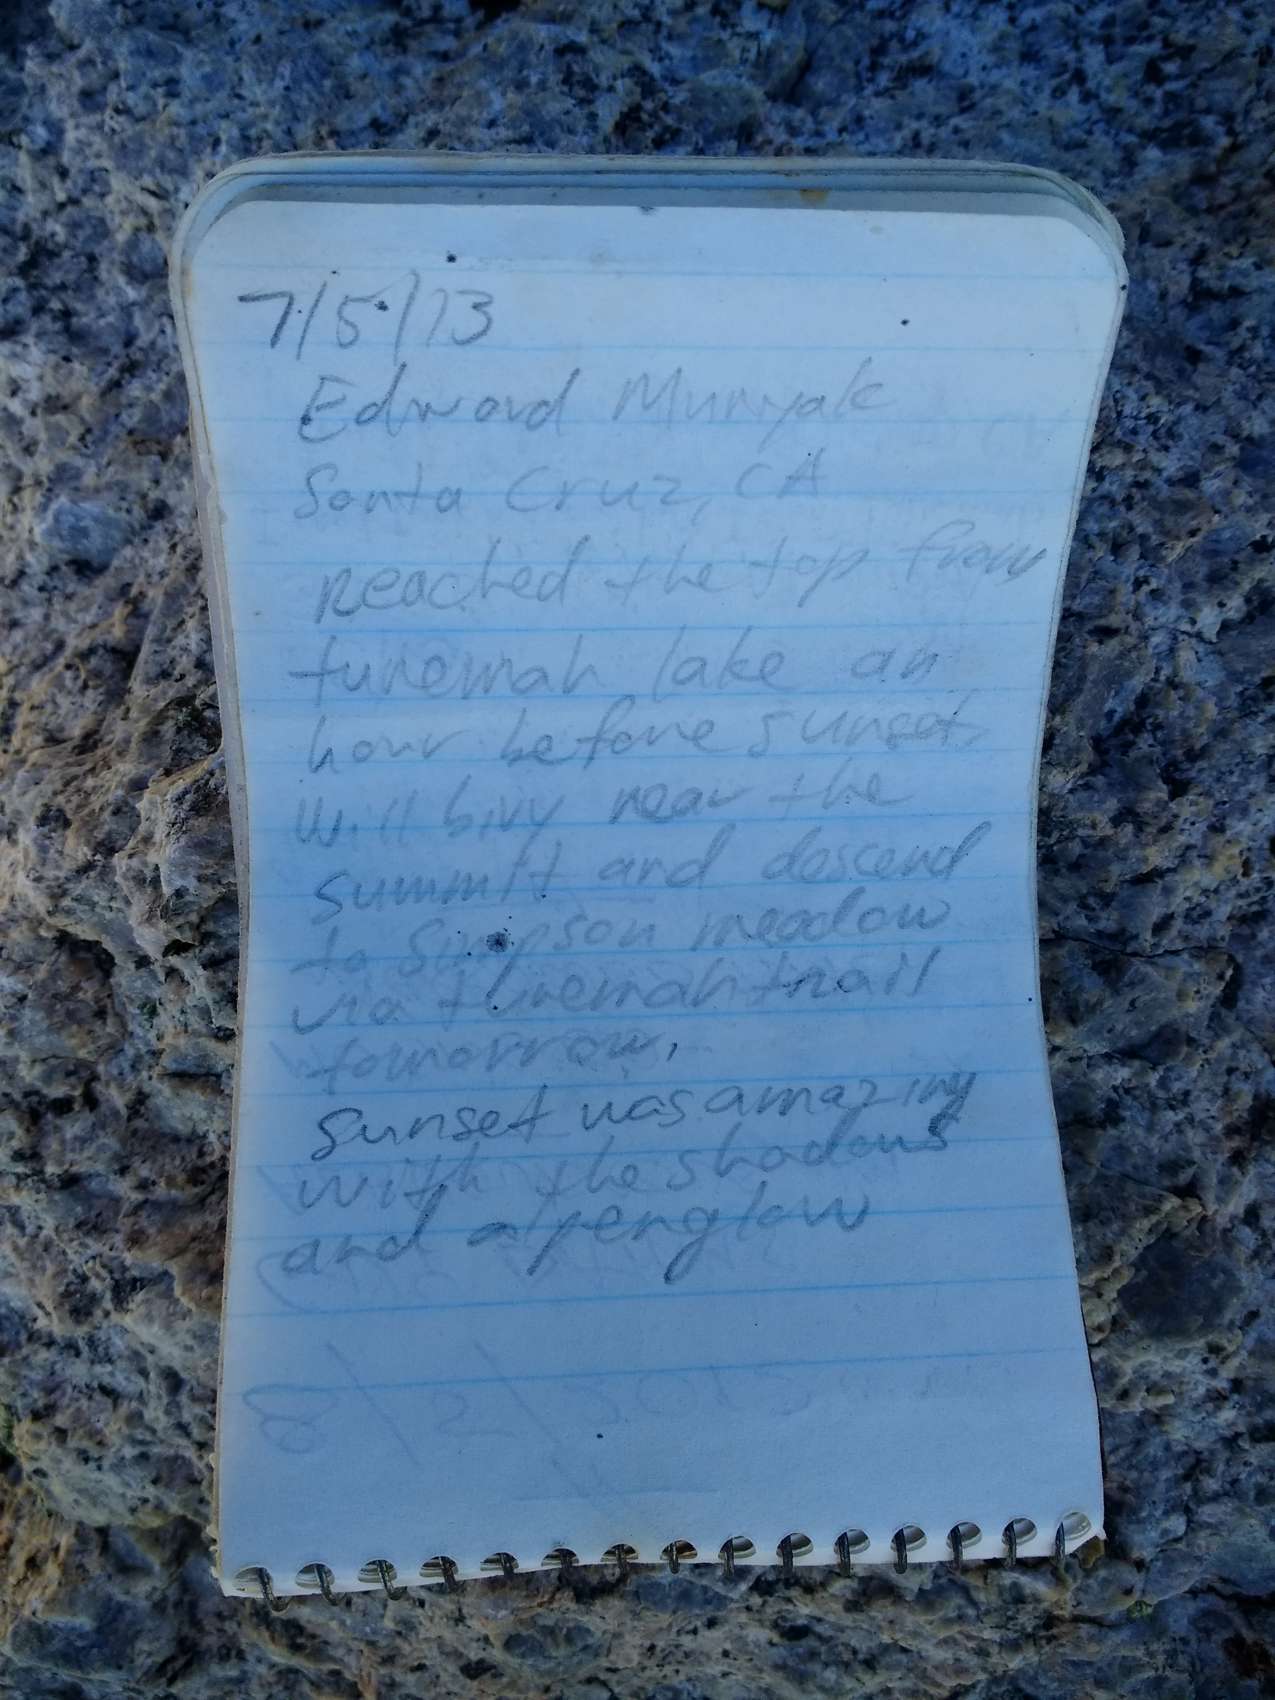 7/5/13
Edward Munyak
Santa Cruz, CA
reached the top from
tunemah lake an
hour before sunset,
will bivy near the
summit and descend
to Simpson meadow
via tunemah trail
tomorrow.
Sunset was amazing
with the shadows
and alpenglow
8/2/2013